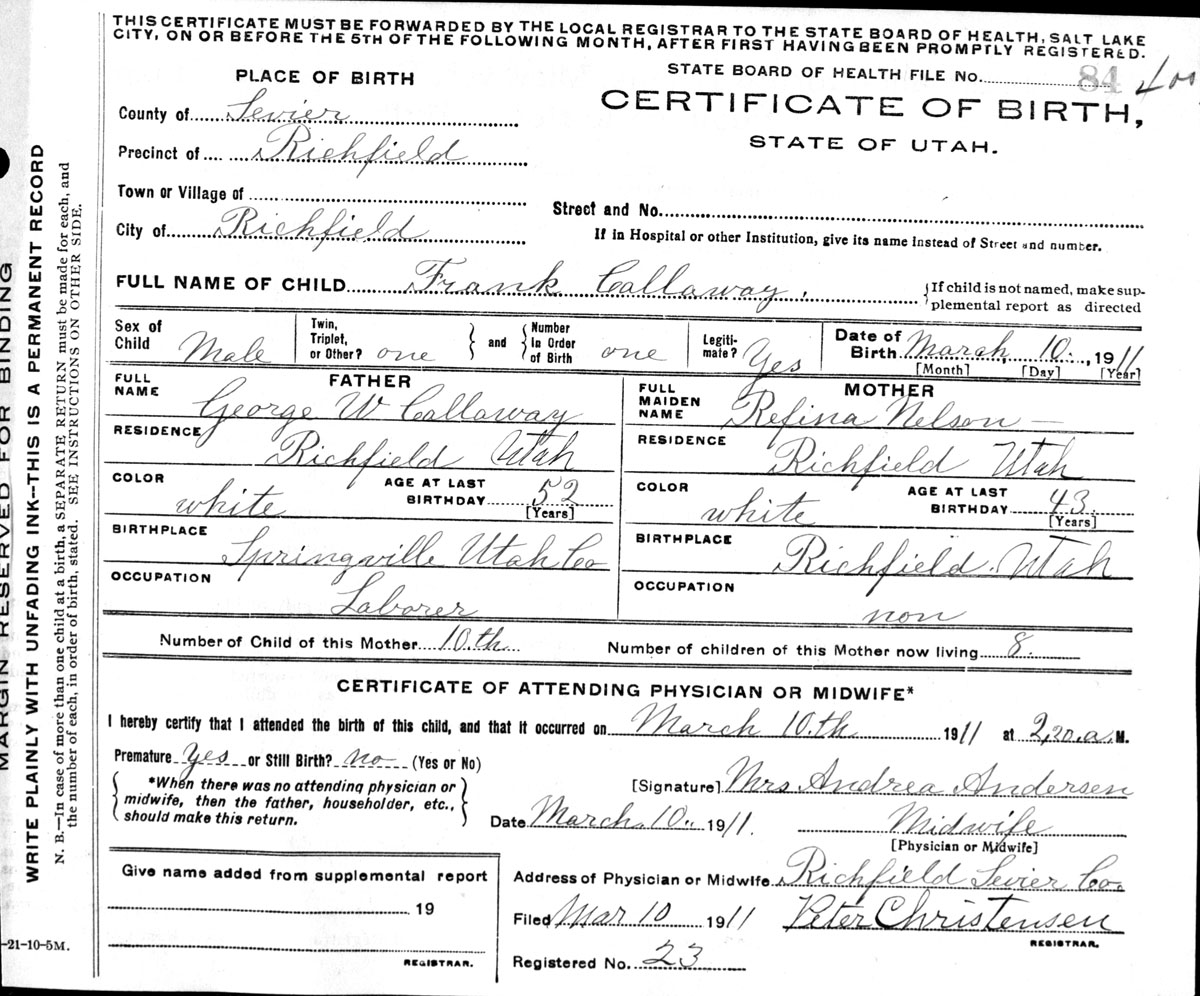 THIS CERTIFICATE MUST BE FORWARDED BY THE LOCAL REGISTRAR TO THE STATE BOARD OF HEALTH, SALT LAKE
CITY, ON OR BEFORE THE 5TH OF THE FOLLOWING MONTH, AFTER FIRST HAVING BEEN PROMPTLY REGISTERED.
STATE BOARD OF HEALTH FILE No. 84
PLACE OF BIRTH
CERTIFICATE OF BIRTH,
STATE OF UTAH.
County of Sevier
Precinct of Richfield
Town or Village of
Street and No.
City of Richfield
If in Hospital or other Institution, give its name instead of Street and number.
FULL NAME OF CHILD Frank Callaway.
{If child is not named, make sup-
plemental report as directed
Sex of Child Male Twin, Triplet, or Other? one } and { Number In Order of Birth one Legiti- mate? Yes Date of Birth March, 10., 1911
[Month] [Day] [Year]
FATHER
FULL NAME George W Callaway
RESIDENCE Richfield Utah
COLOR white AGE AT LAST BIRTHDAY 52 [Years]
BIRTHPLACE Springville Utah Co
OCCUPATION Laborer
MOTHER
FULL MAIDEN NAME Refina Nelson —
RESIDENCE Richfield Utah
COLOR white AGE AT LAST BIRTHDAY 43. [Years]
BIRTHPLACE Richfield. Utah
OCCUPATION non
Number of Child of this Mother 10.th Number of children of this Mother now living 8.
CERTIFICATE OF ATTENDING PHYSICIAN OR MIDWIFE*
I hereby certify that I attended the birth of this child, and that it occurred on March 10.th 1911 at 2,20.a.M.
Premature Yes or Still Birth? no (Yes or No)
*When there was no attending physician or
midwife, then the father, householder, etc.,
should make this return.
[Signature] Mrs Andrea Andersen
Date March. 10.. 1911. Midwife
[Physician or Midwife]
Give name added from supplemental report
19
REGISTRAR.
Address of Physician or Midwife Richfield Sevier Co.
Filed Mar 10 1911 Peter Christensen
REGISTRAR.
Registered No. 23
MARGIN RESERVED FOR BINDING
WRITE PLAINLY WITH UNFADING INK--THIS IS A PERMANENT RECORD
N. B.—In case of more than one child at a birth, a SEPARATE RETURN must be made for each, and
the number of each, in order of birth, stated. SEE INSTRUCTIONS ON OTHER SIDE.
-21-10-5M.